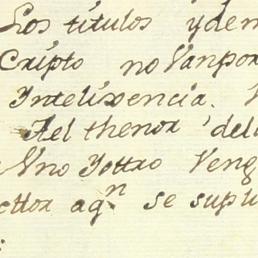 Los titulos ydem
Cripto no Vanpor
Intelixencia.
Ael thenor del
Vno Yottro Veng
cttor aqⁿ se supli